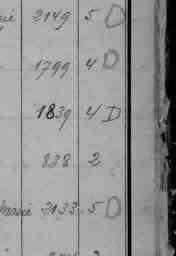 2149 5 D
1799 4 D
1839 4 D
838 2
2133 5 D